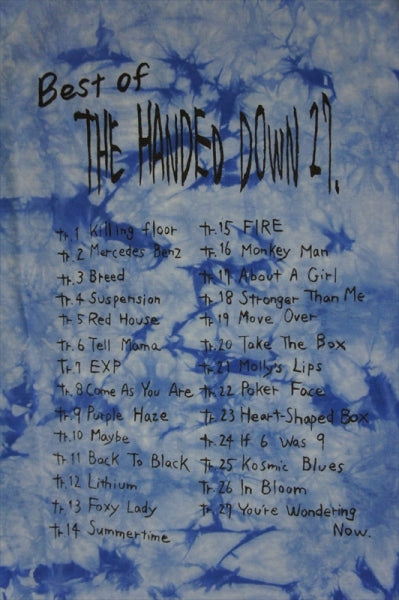 Best of
THE HANDED DOWN 27.
Tr.1 Killing floor
Tr.2 Mercedes Benz
Tr.3 Breed
Tr.4 Suspension
Tr.5 Red House
Tr.6 Tell Mama
Tr.7 EXP
Tr.8 Come As You Are
Tr.9 Purple Haze
Tr.10 Maybe
Tr.11 Back To Black
Tr.12 Lithium
Tr.13 Foxy Lady
Tr.14 Summertime
Tr.15 FIRE
Tr.16 Monkey Man
Tr.17 About A Girl
Tr.18 Stronger Than Me
Tr.19 Move Over
Tr.20 Take The Box
Tr.21 Molly's Lips
Tr.22 Poker Face
Tr.23 Heart-Shaped Box
Tr.24 If 6 Was 9
Tr.25 Kosmic Blues
Tr.26 In Bloom
Tr.27 You're Wondering
Now.